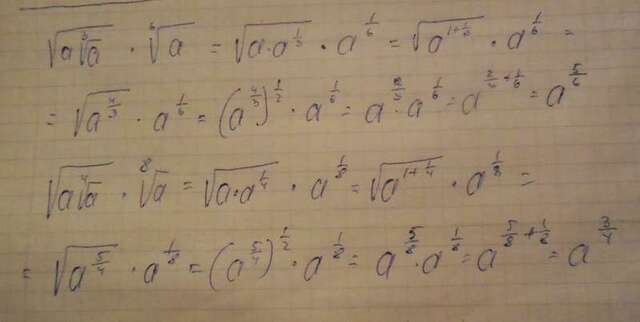 √(a∛a) · ⁶√a = √(a·a^(1/3)) · a^(1/6) = √(a^(1+1/3)) · a^(1/6) =
= √(a^(4/3)) · a^(1/6) = (a^(4/3))^(1/2) · a^(1/6) = a^(2/3) · a^(1/6) = a^(2/3+1/6) = a^(5/6)
√(a⁴√a) · ⁸√a = √(a·a^(1/4)) · a^(1/8) = √(a^(1+1/4)) · a^(1/8) =
= √(a^(5/4)) · a^(1/8) = (a^(5/4))^(1/2) · a^(1/8) = a^(5/8) · a^(1/8) = a^(5/8+1/8) = a^(3/4)